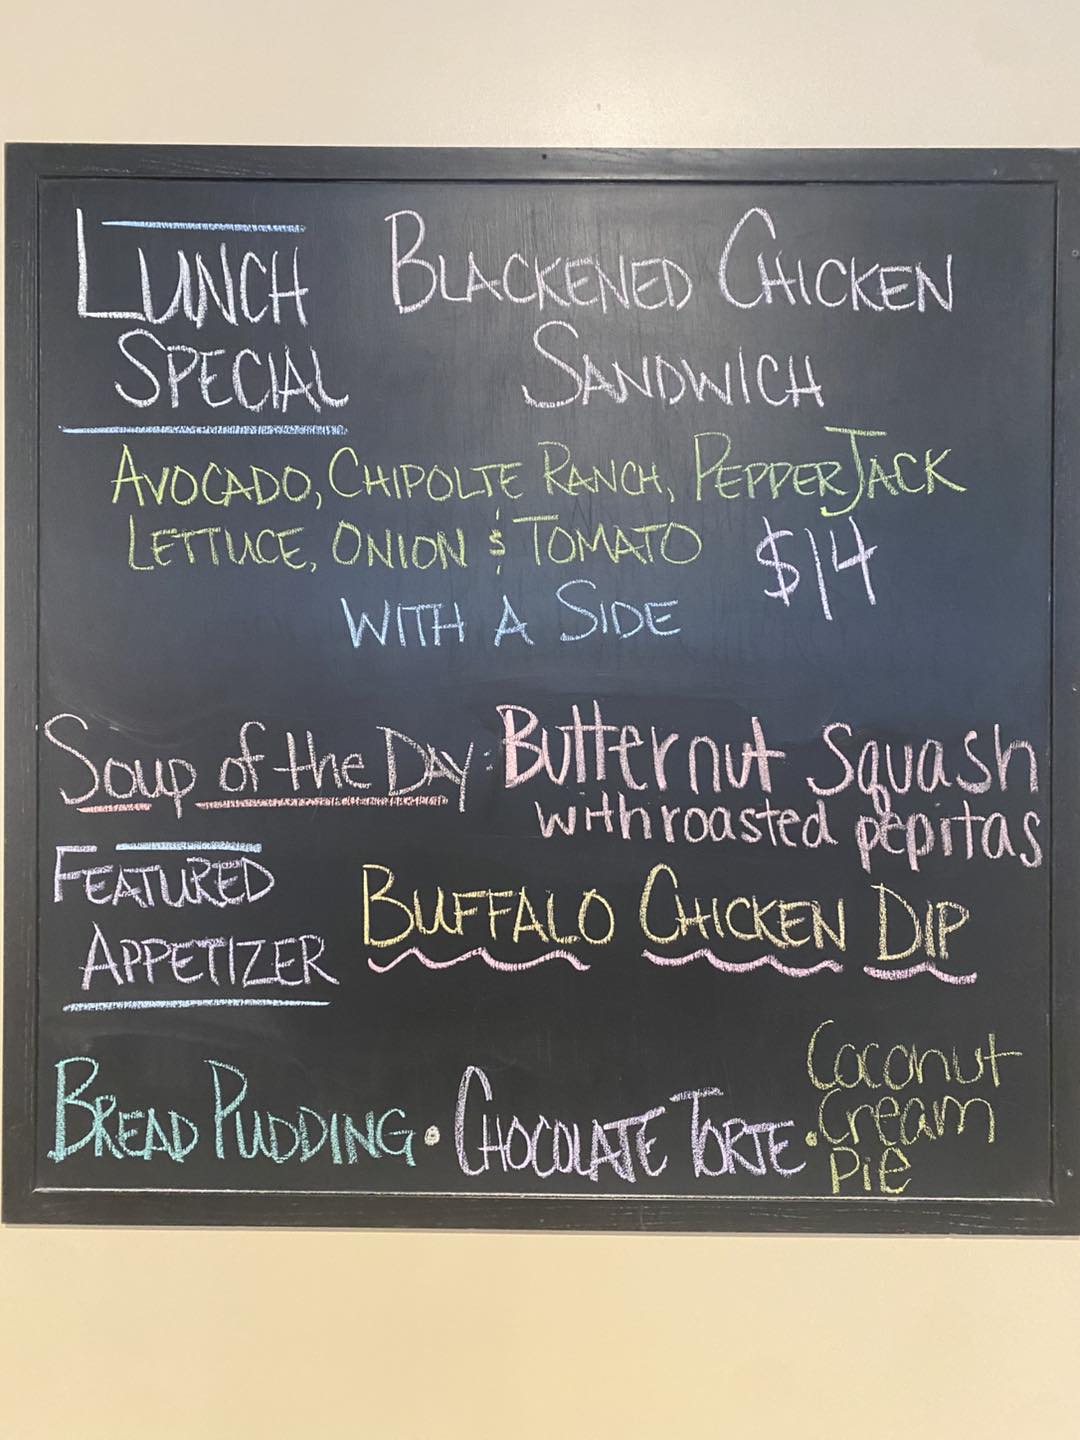 LUNCH SPECIAL
BLACKENED CHICKEN
SANDWICH
AVOCADO, CHIPOLTE RANCH, PEPPER JACK
LETTUCE, ONION & TOMATO $14
WITH A SIDE
Soup of the DAY: Butternut Squash
with roasted pepitas
FEATURED
APPETIZER
BUFFALO CHICKEN DIP
BREAD PUDDING • CHOCOLATE TORTE •
Coconut
Cream
Pie